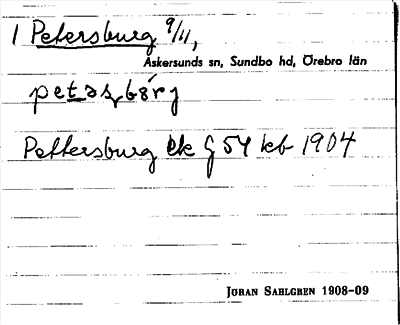 1 Petersburg 9/11,
Askersunds sn, Sundbo hd, Örebro län
Pettersburg ek G 54 kb 1904
JÖRAN SAHLGREN 1908-09